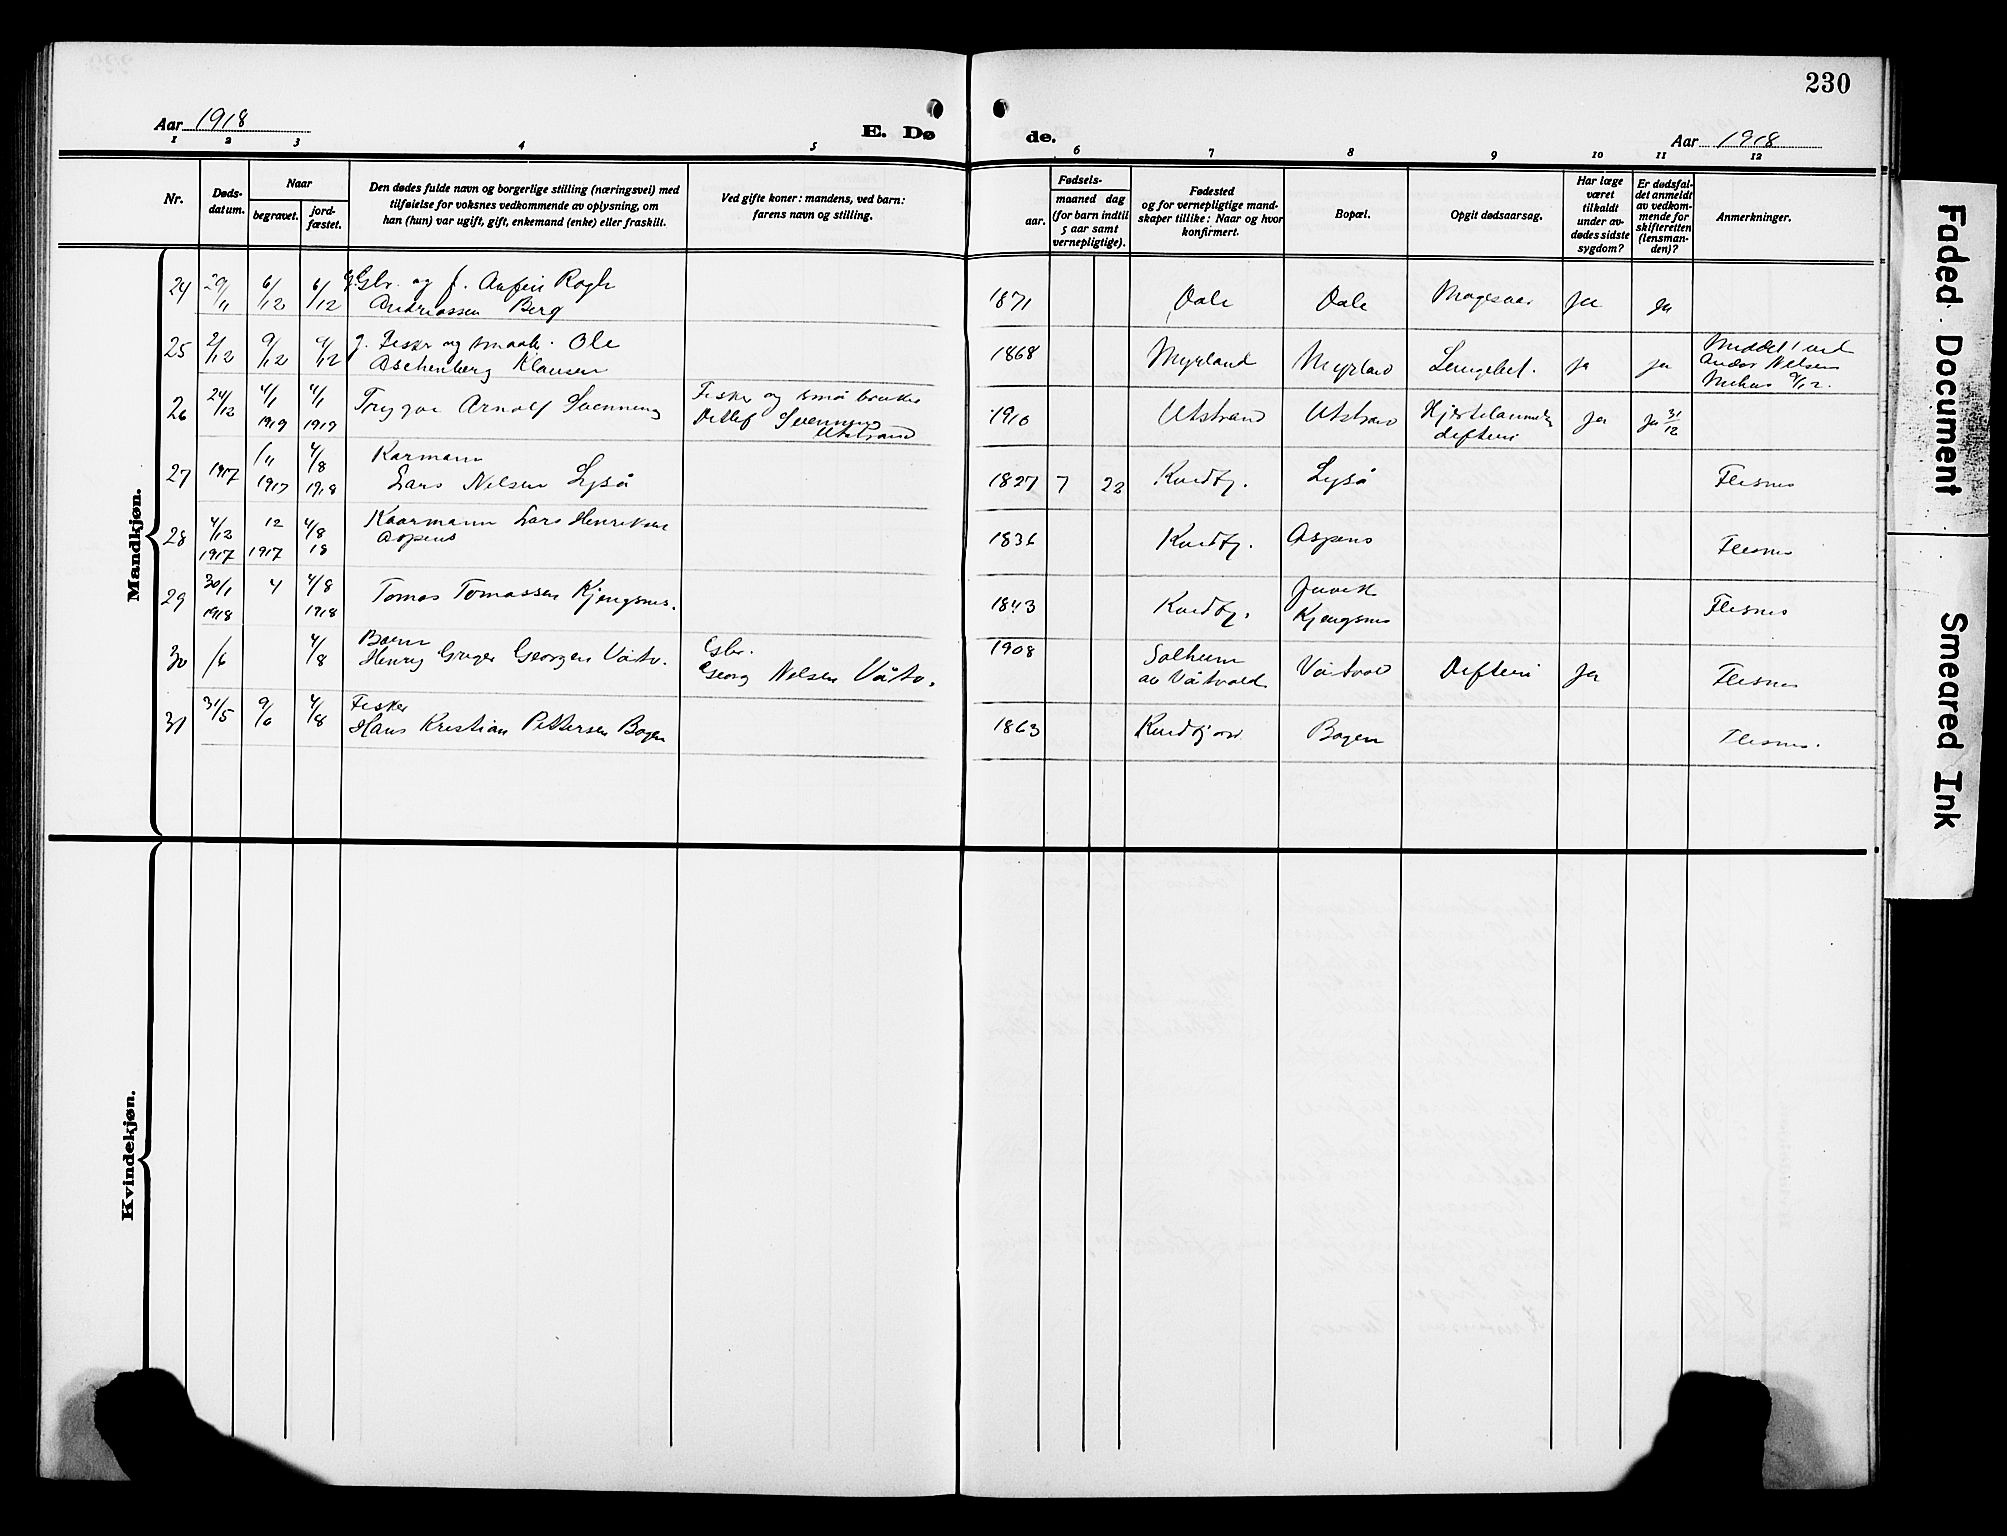 230
Aar 1918
E. Dø
de.
Aar 1918
1 2 3 4 5 6 7 8 9 10 11 12
Nr.
Døds-
datum.
Naar
begravet.
jord-
fæstet.
Den dødes fulde navn og borgerlige stilling (næringsvei) med
tilføielse for voksnes vedkommende av oplysning, om
han (hun) var ugift, gift, enkemand (enke) eller fraskilt.
Ved gifte koner: mandens, ved barn:
farens navn og stilling.
Fødsels-
aar.
maaned dag
(for barn indtil
5 aar samt
vernepligtige).
Fødested
og for vernepligtige mand-
skaper tillike: Naar og hvor
konfirmert.
Bopæl.
Opgit dødsaarsag.
Har læge
været
tilkaldt
under av-
dødes sidste
sygdom?
Er dødsfal-
det anmeldt
av vedkom-
mende for
skifteretten
(lensman-
den)?
Anmerkninger.
Mandkjøn.
24 29/11 6/12 6/12 g. Gbr. og f.
Andreassen Berg
1871 Dale Dale Ja Ja
25 2/12 9/12 g. Fisker og smaab. Ole
Aschenberg Klausen
1868 Myrland Myrland Lungebet. Ja Ja
26 24/12 4/1 1919 4/1 1919 Trygve Arnolf Svenning
Fisker og småbruker
Detlef Svenning
Utstrand
1910 Utstrand Utstrand
Difteri Ja Ja 31/12
27 1917 /11 1917 4/8 1918 Kaarmann
Lars Nilsen Lysø
1827 7 22 Kvedfj. Lysø Flesnes
28 4/12 1917 12 1917 4/8 18 Kaarmann Lars Henriksen
Aspenes
1836 Kvedfj. Aspenes Flesnes
29 30/1 1918 4 4/8 1918 Tomas Tomassen Kjengsnes.
1843 Kvedfj. Kjengsnes Flesnes
30 /6 4/8 Barn
Henry Georgsen Våtv.
Gbr.
Georg Nilsen Våtv.
1908 Solheim
av Våtvold Våtvold Difteri Ja Flesnes
31 31/5 9/6 4/8 Fisker
Hans Kristian Pettersen Bogen
1863 Kvedfjord Bogen Flesnes.
Kvindekjøn.
Faded Document
Smeared Ink